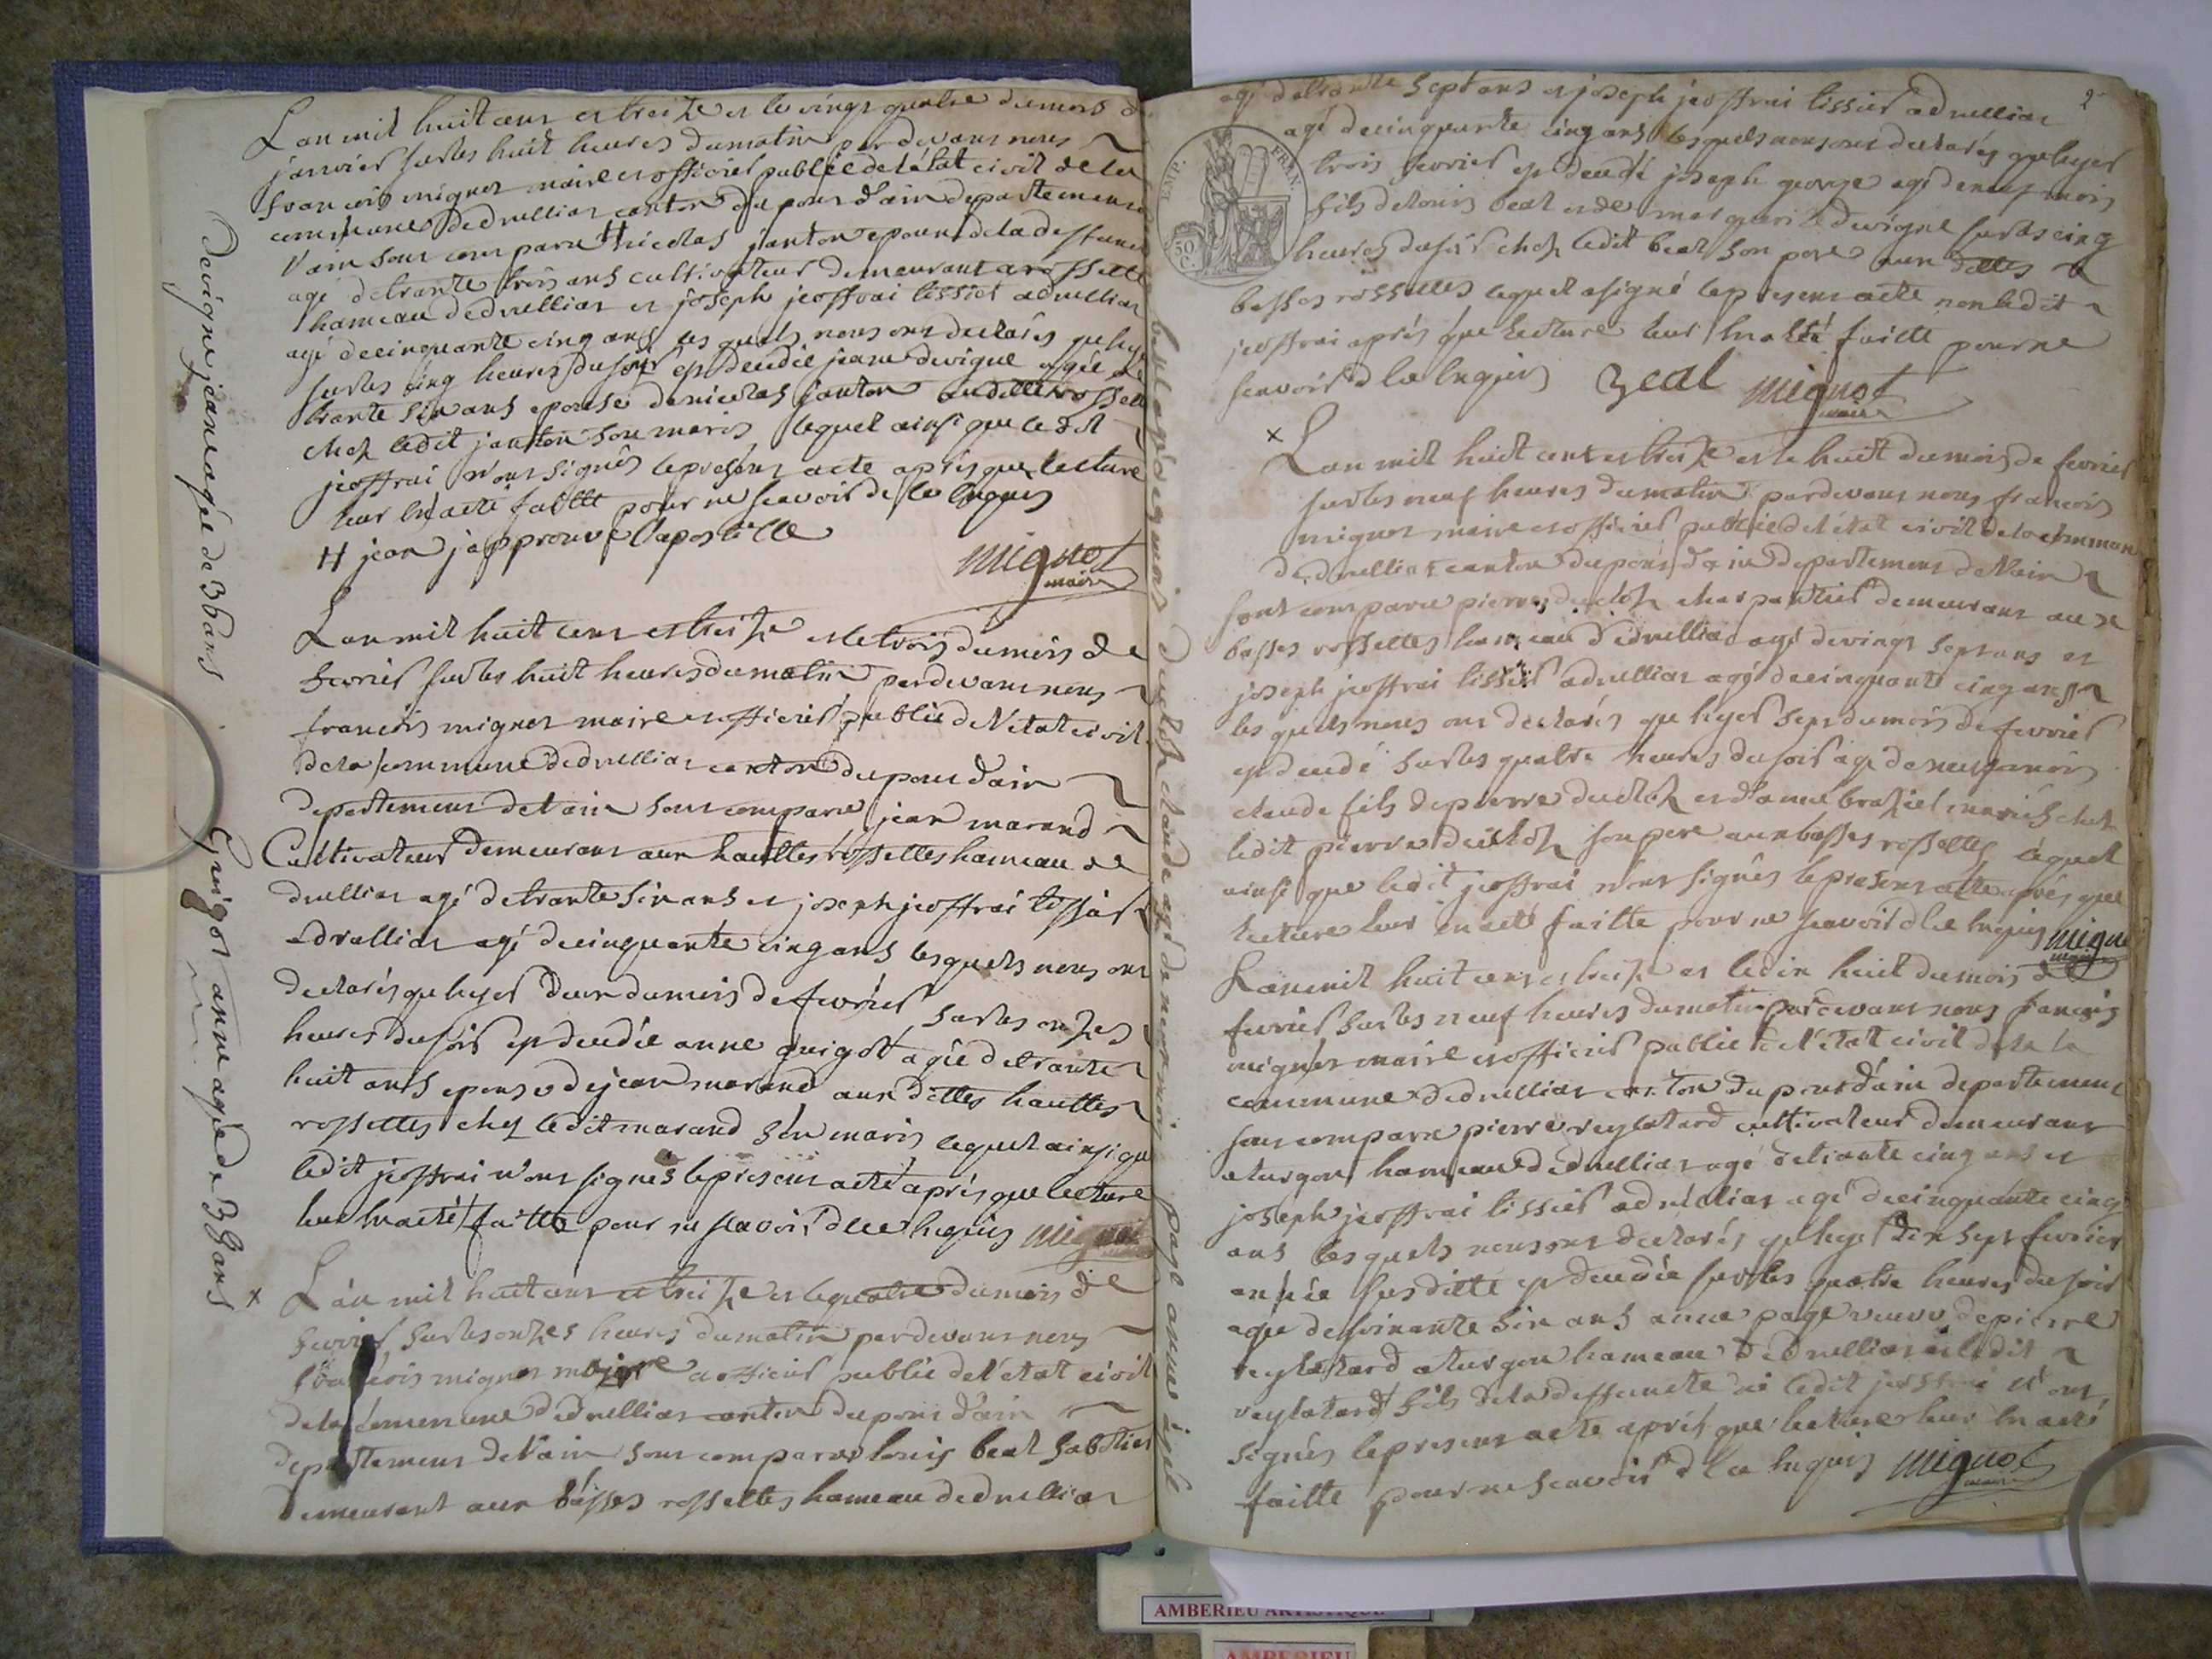 L'an mil huit cens et treize et le vingt quatre du mois de
janvier sur les huit heures du matin par devans nous
francois mignot maire et officier public de l'état civil de la
commune de druillias canton du pont d'ain departement de
l'ain sont comparu # nicolas janton epoux de la deffunte
agé de trante trois ans cultivateur demeurant a rossette
hameau de druillias et joseph jeoffrai tissier a druillias
agé de cinquante cinq ans les quels nous ont declarés que hyer
sur les cinq heures du soir est deudée jeane devigne agée de
trante six ans epouse de nicolas janton audittes rossettes
chez ledit janton son maris lequel ainsi que ledit
jeoffrai n'ont signés le present acte aprés que lecture
leur en a eté faitte pour ne scavoir de ce enquis
# jean j'approuve l'apostille
mignot
maire
devigne jeane agée de 36 ans
L'an mil huit cens et treize et le trois du mois de
fevrier sur les huit heures du matin par devans nous
francois mignot maire et officier public de l'etat civil
de la commune de druillias canton du pont d'ain
departement de l'ain sont comparu jean marand
Cultivateur demeurans aux hauttes rossettes hameau de
druillias agé de trante six ans et joseph jeoffrai tissier
a druillias agé de cinquante cinq ans lesquels nous ont
declarés que hyer deux du mois de fevrier sur les onzes
heures du soir est deudée anne guigot agée de trante
huit ans epouse de jean marand aux dittes hauttes
rossettes chez ledit marand son maris lequel ainsi que
ledit jeoffrai n'ont signés le present acte aprés que lecture
leur en a eté faitte pour ne scavoir de ce enquis mignot
Guigot anne agée de 38 ans
x L'an mil huit cens et treize et le quatre du mois de
fevrier sur les onzes heures du matin par devans nous
francois mignot maire et officier public de l'etat civil
de la commune de druillias canton du pont d'ain
departement de l'ain sont comparu louis beal sabotier
demeurant aux basses rossettes hameau de druillias
2
agé de trante sept ans et joseph jeoffrai tissier a druillias
agé de cinquante cinq ans lesquels nous ont declarés que hyer
trois fevrier est deudé joseph george agé de neuf mois
fils de louis beal et de margueritte devigne sur les cinq
heures du soir chez ledit beal son pere aux dittes
basses rossettes lequel a signé le present acte non ledit
jeoffrai aprés que lecture leur en a eté faitte pour ne
scavoir de ce enquis beal mignot
maire
EMP. FRAN.
50 C.
x L'an mil huit cens et treize et le huit du mois de fevrier
sur les neuf heures du matin par devans nous francois
mignot maire et officier public de l'état civil de la commune
de druillias canton du pont d'ain departement de l'ain
sont comparu pierre ducloz charpantier demeurans aux
basses rossettes hameau de druillias agé de vingt sept ans et
joseph jeoffrai tissier a druillias agé de cinquante cinq ans
les quels nous ont declarés que hyer sept du mois de fevrier
est deudé sur les quatre heures du soir agé de neuf mois
claude fils de pierre ducloz et d'anne braziel mariés chez
ledit pierre ducloz son pere aux basses rossettes lequel
ainsi que ledit jeoffrai n'ont signés le present acte aprés que
lecture leur en a eté faitte pour ne scavoir de ce enquis mignot
maire
L'an mil huit cens et treize et le dix huit du mois de
fevrier sur les neuf heures du matin par devans nous francois
mignot maire et officier public de l'état civil de la la
commune de druillias canton du pont d'ain departement
sont comparu pierre reylatard cultivateur demeurans
a turgon hameau de druillias agé de trante cinq ans et
joseph jeoffrai tissier a druillias agé de cinquante cinq
ans lesquels nous ont declarés que hyer dix sept fevrier
année susditte est deudée sur les quatre heures du soir
agée de soixante six ans anne page veuve de pierre
reylatard a turgon hameau de druillias ledit
reylatard fils de la deffuncte ni ledit jeoffrai n'ont
signés le present acte aprés que lecture leur en a eté
faitte pour ne scavoir de ce enquis mignot
maire
ducloz claude agé de neuf mois
page anne agée
AMBERIEU ARTISTIQUE
AMBERIEU